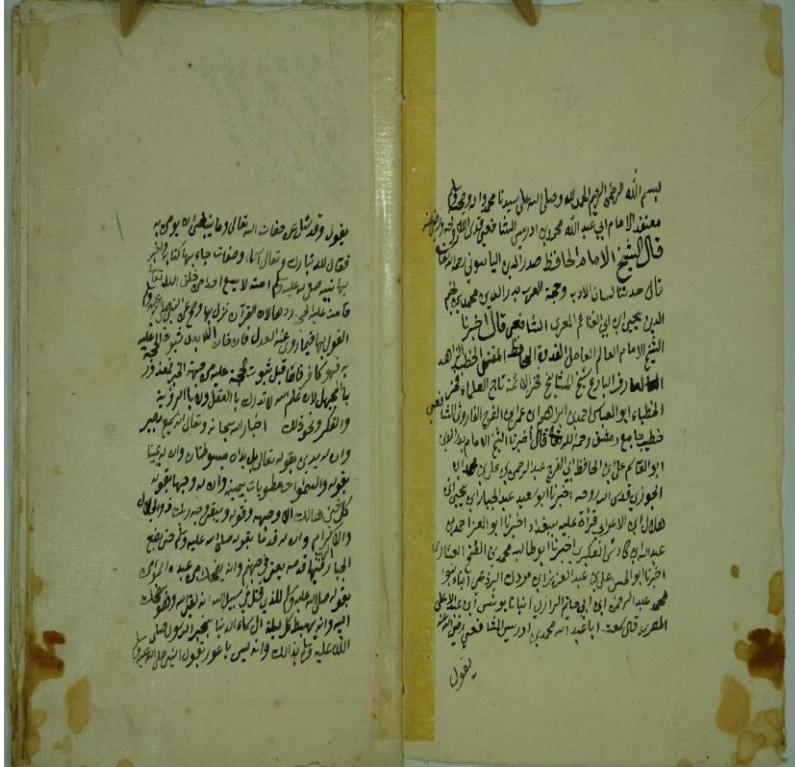 بسم الله الرحمن الرحيم الحمد لله وصلى الله على سيدنا محمد واله وصحبه وسلم
معتقد الامام ابي عبد الله محمد بن ادريس الشافعي قدس الله روحه
قال الشيخ الامام الحافظ صدر الدين الياسوفي رحمه الله تعالى
قال حدثنا لسان الادب وحجة العرب بدر الدين محمد بن نجم
الدين يحيى ابن ابي الغنائم المعري الشافعي قال اخبرنا
الشيخ الامام العالم العامل القدوة الحافظ المفتي الخطيب الزاهد
العارف البارع شيخ المشايخ فخر الائمة تاج العلماء فخر
الخطباء ابو العباس احمد بن ابراهيم ابن عمر بن الفرج الفاروثي الشافعي
خطيب جامع دمشق رحمه الله قال أخبرنا الشيخ الامام بدر الدين
ابو القاسم علي بن الحافظ ابي الفرج عبد الرحمن بن علي بن محمد ابن
الجوزي قدس الله روحه اخبرنا ابو سعيد عبد الجبار ابن يحيى بن
هلال ابن الاعرابي قراة عليه ببغداد اخبرنا ابو العز احمد بن
عبد الله ابن كادش العكبري اخبرنا ابو طالب محمد بن العشاري
اخبرنا ابو الحسن علي بن عبد العزيز ابن مردك البرذعي أنبانا ابو
محمد عبد الرحمن ابن ابي حاتم الرازي انبانا يونس ابن عبد الاعلى
المصري قال سمعت ابا عبد الله محمد بن ادريس الشافعي رضي الله عنه
يقول
يقول وقد سئل عن صفات الله تعالى وما ينبغي ان يومن به
فقال لله تبارك وتعالى اسماء وصفات جاء بها كتابه واخبر
بها نبيه صلى الله عليه وسلم امته لا يسع احدا من خلق الله
قامت عليه الحجة ردها لان القرآن نزل بها وصح عن النبي صلى الله عليه وسلم
القول بها فيما روى عنه العدل فان خالف بعد ثبوت الحجة عليه
به فهو كافر فاما قبل ثبوت الحجة عليه من جهة الخبر فمعذور
بالجهل لان علم الله لا يدرك بالعقل ولا بالروية
والفكر ونحو ذلك اخبار الله سبحانه وتعالى انه سميع بصير
وان له يدين بقوله تعالى بل يداه مبسوطتان وان له يمينا
بقوله والسموات مطويات بيمينه وان له وجها بقوله
كل شي هالك الا وجهه وقوله ويبقى وجه ربك ذو الجلال
والاكرام وان له قدما بقوله صلى الله عليه وسلم حتى يضع
الجبار فيها قدمه يعني في جهنم وانه يضحك من عبده المؤمن
بقوله صلى الله عليه وسلم للذي قتل في سبيل الله انه لقي الله وهو يضحك
اليه وانه يهبط كل ليلة الى سماء الدنيا بخبر الرسول صلى
الله عليه وسلم بذلك وانه ليس باعور بقول النبي صلى الله عليه وسلم